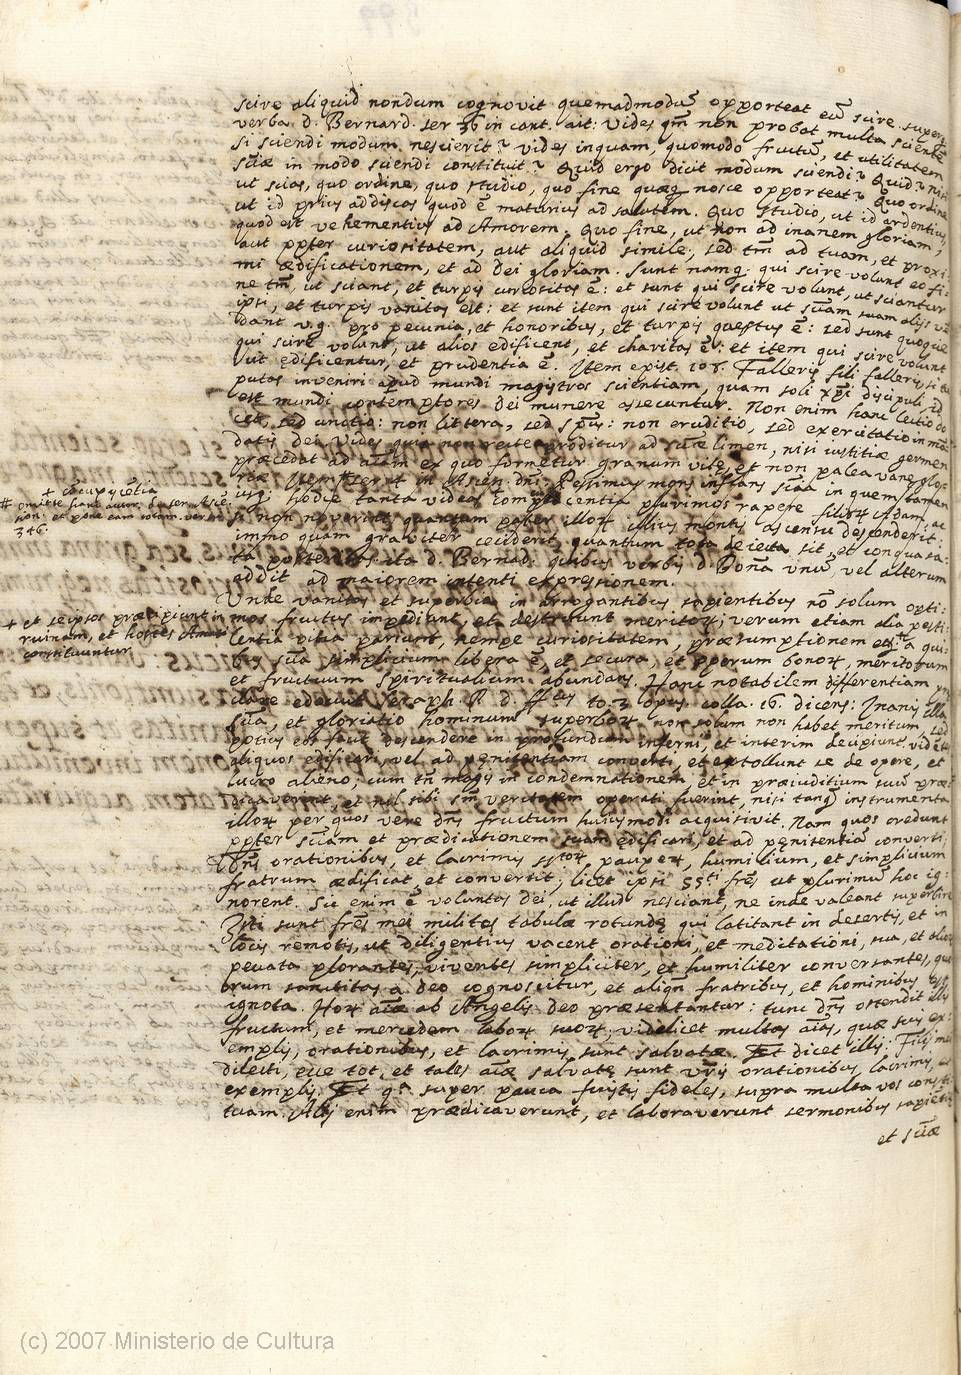 scire aliquid nondum cognovit quemadmodũ opporteat eũ scire. super q̃
verba d. Bernard. ser 36 in cant. ait: Vides qm̃ non probat multa sciente
si sciendi modum nescierit? vides inquam, quomodo fructũ, et utilitatem
sciẽ in modo sciendi constituit? Quid ergo dicit modum sciendi? Quid? nisi
ut scias, quo ordine, quo studio, quo fine quæq. nosce opporteat? Quo ordine
ut id prius addiscas quod ẽ maturius ad salutem. Quo studio, ut id ardentius,
quod est vehementius ad Amorem. Quo fine, ut non ad inanem gloriam,
aut ppter curiositatem, aut aliquid simile, sed tm̃ ad tuam, et proxi:
mi ædificationem, et ad dei gloriam. Sunt namq. qui scire volunt eo fi:
ne tm̃, ut sciant, et turpis curiositas ẽ: et sunt qui scire volunt, ut sciantur
ipsi, et turpis vanitas est: et sunt item qui scire volunt ut scĩam suam alijs vẽ
dant v.g. pro pecunia, et honoribus, et turpis quęstus ẽ: sed sunt quoque
qui scire volunt, ut alios edificent, et charitas ẽ: et item qui scire volunt
ut ędificentur, et prudentia ẽ. Item epist. 108. Falleris fili falleris, si te
putas inveniri apud mundi magistros scientiam, quam soli xp̃i discipuli id
est mundi contemptores dei munere assecuntur. Non enim hanc lectio do
cet, sed unctio: non littera, sed sp̃us: non eruditio, sed exercitatio in mã
datis dei. Vides quia non recte proditur ad sciẽ limen, nisi iustitiæ germen
præcedat ad aĩam ex quo formetur granum vitę, et non palea vanę glo
riæ. Item ser 4 in Ascen. dñi. Pessimus mons inflans scĩa in quem tamen
usq; hodie tanta videas complacentia plurimos rapere filiorum Adam, ac
si non noverint quantum pater illorum illius montis ascensu descenderit:
immo quam graviter ceciderit, quantum tota deiecta sit, et conquasa
ta posteritas. ita d. Bernad: quibus verbis d. Bonã vnũ, vel alterum
addit ad maiorem intenti expressionem.
+ cõcupiscẽtia
# omitte hanc autor.
346.
Unde vanitas et superbia in arrogantibus sapientibus nõ solum opti:
mos fructus impediunt, et destruunt meritorum; verum etiam alia pesti:
lentia vitia pariunt, nempe curiositatem, præsumptionem etc. a qui:
b9 scĩa simplicium libera ẽ, et secura, et operum bonorum, meritorum
+ et seipsos præcipitant in
ruinam, et hostes
constituuntur
et fructuum spiritualium abundans. Hanc notabilem differentiam
clare edocuit Seraph. P. d. ffcus to. 3 opus. colla. 16. dicens: Inanis illa
scĩa, et gloriatio hominum superborum non solum non habet meritum, sed
potius eos facit descendere in profundum inferni, et interim decipiunt. vidẽt
aliquos edificari, vel ad penitentiam converti, et extollunt se de opere, et
lucro alieno; cum tñ magis in condemnationem, et in præiuditium suũ præ
dicaverint, et nil sibi scm̃ veritatem operati fuerint, nisi tanq̃ instrumenta
illorum per quos vere dñs fructum huiusmodi acquisivit. Nam quos credunt
ppter scĩam et prædicationem suam edificari, et ad penitentiã converti;
Dñs orationibus, et lacrimis sstorum, pauperum, humilium, et simplicium
fratrum ædificat, et convertit; licet ipsi ssti frẽs ut plurimũ hoc ig:
norent. Sic enim ẽ voluntas dei, ut illud nesciant, ne inde valeant superbire
Isti sunt frẽs mei milites tabulæ rotundę qui latitant in desertis, et in
locis remotis, ut diligentius vacent orationi, et meditationi, sua, et alior̃
peccata plorantes, viventes simpliciter, et humiliter conversantes, quo
rum sanctitas a deo cognoscitur, et aliqñ fratribus, et hominibus est
ignota. Horum aĩæ ab Angelis deo præsentantur: tunc dñs ostendit illis
fructum, et mercedem laborum suorum, videlicet multas aĩas, quæ suis ex:
emplis, orationibus, et lacrimis sunt salvatæ. Et dicet illis: Filij mei
dilecti, ecce tot, et tales aĩæ salvatę sunt vr̃is orationibus, lacrimis, et
exemplis. Et qa super pauca fuistis fideles, supra multa vos consti
tuam. Alij enim prædicaverunt, et laboraverunt sermonibus sapiẽtiæ
et scĩæ
(c) 2007 Ministerio de Cultura